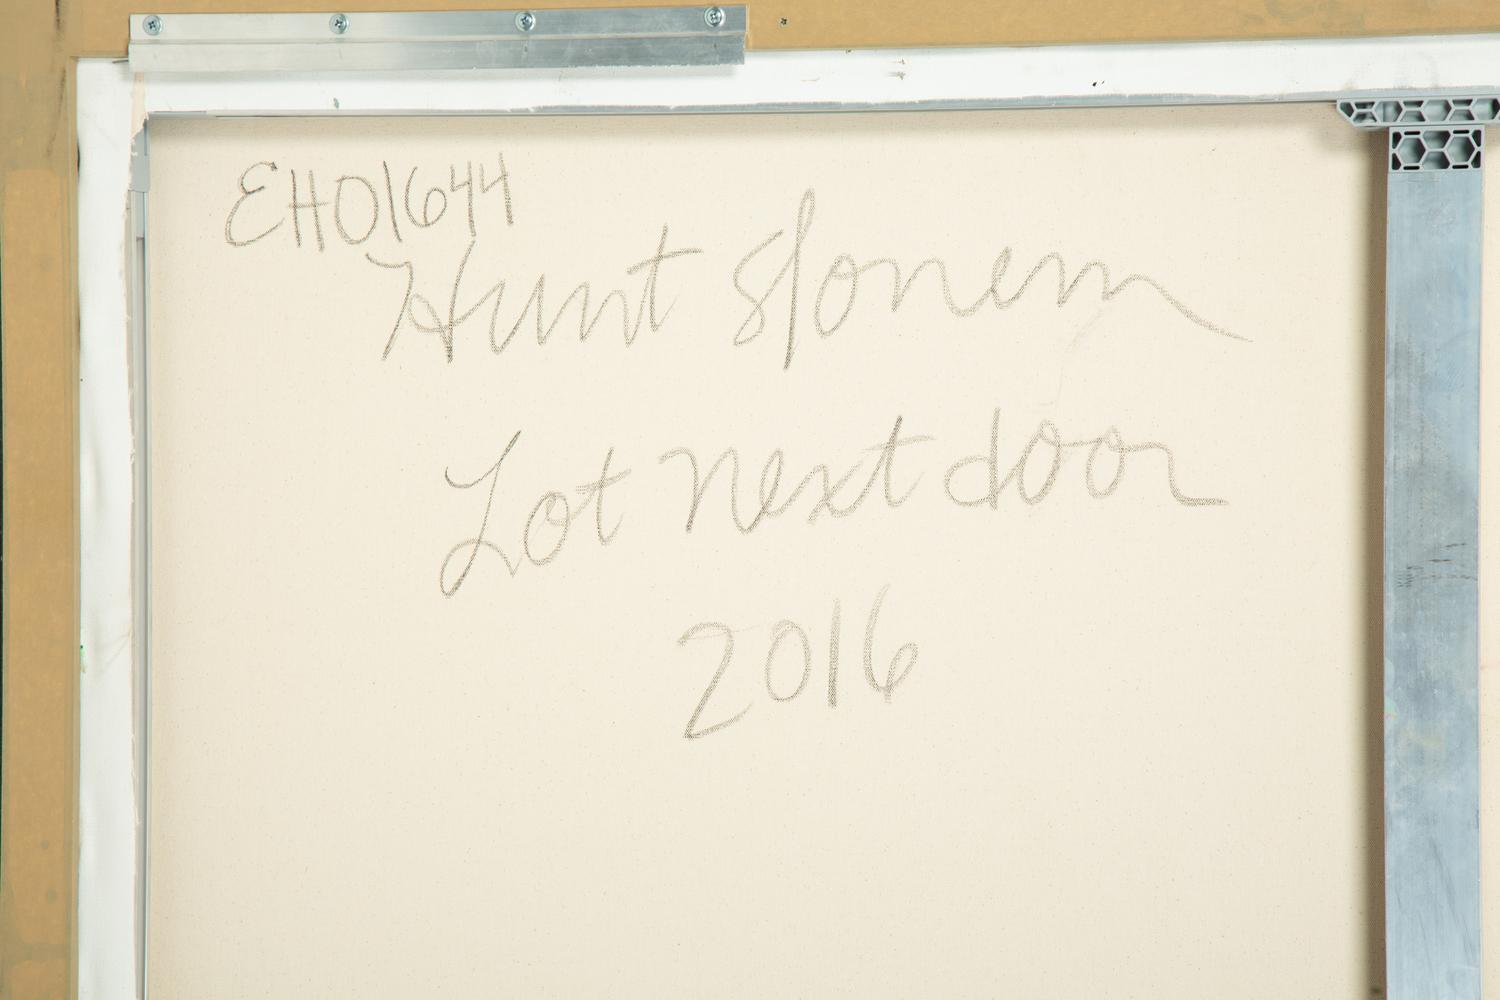 EHO1644
Hunt Slonem
Lot next door
2016